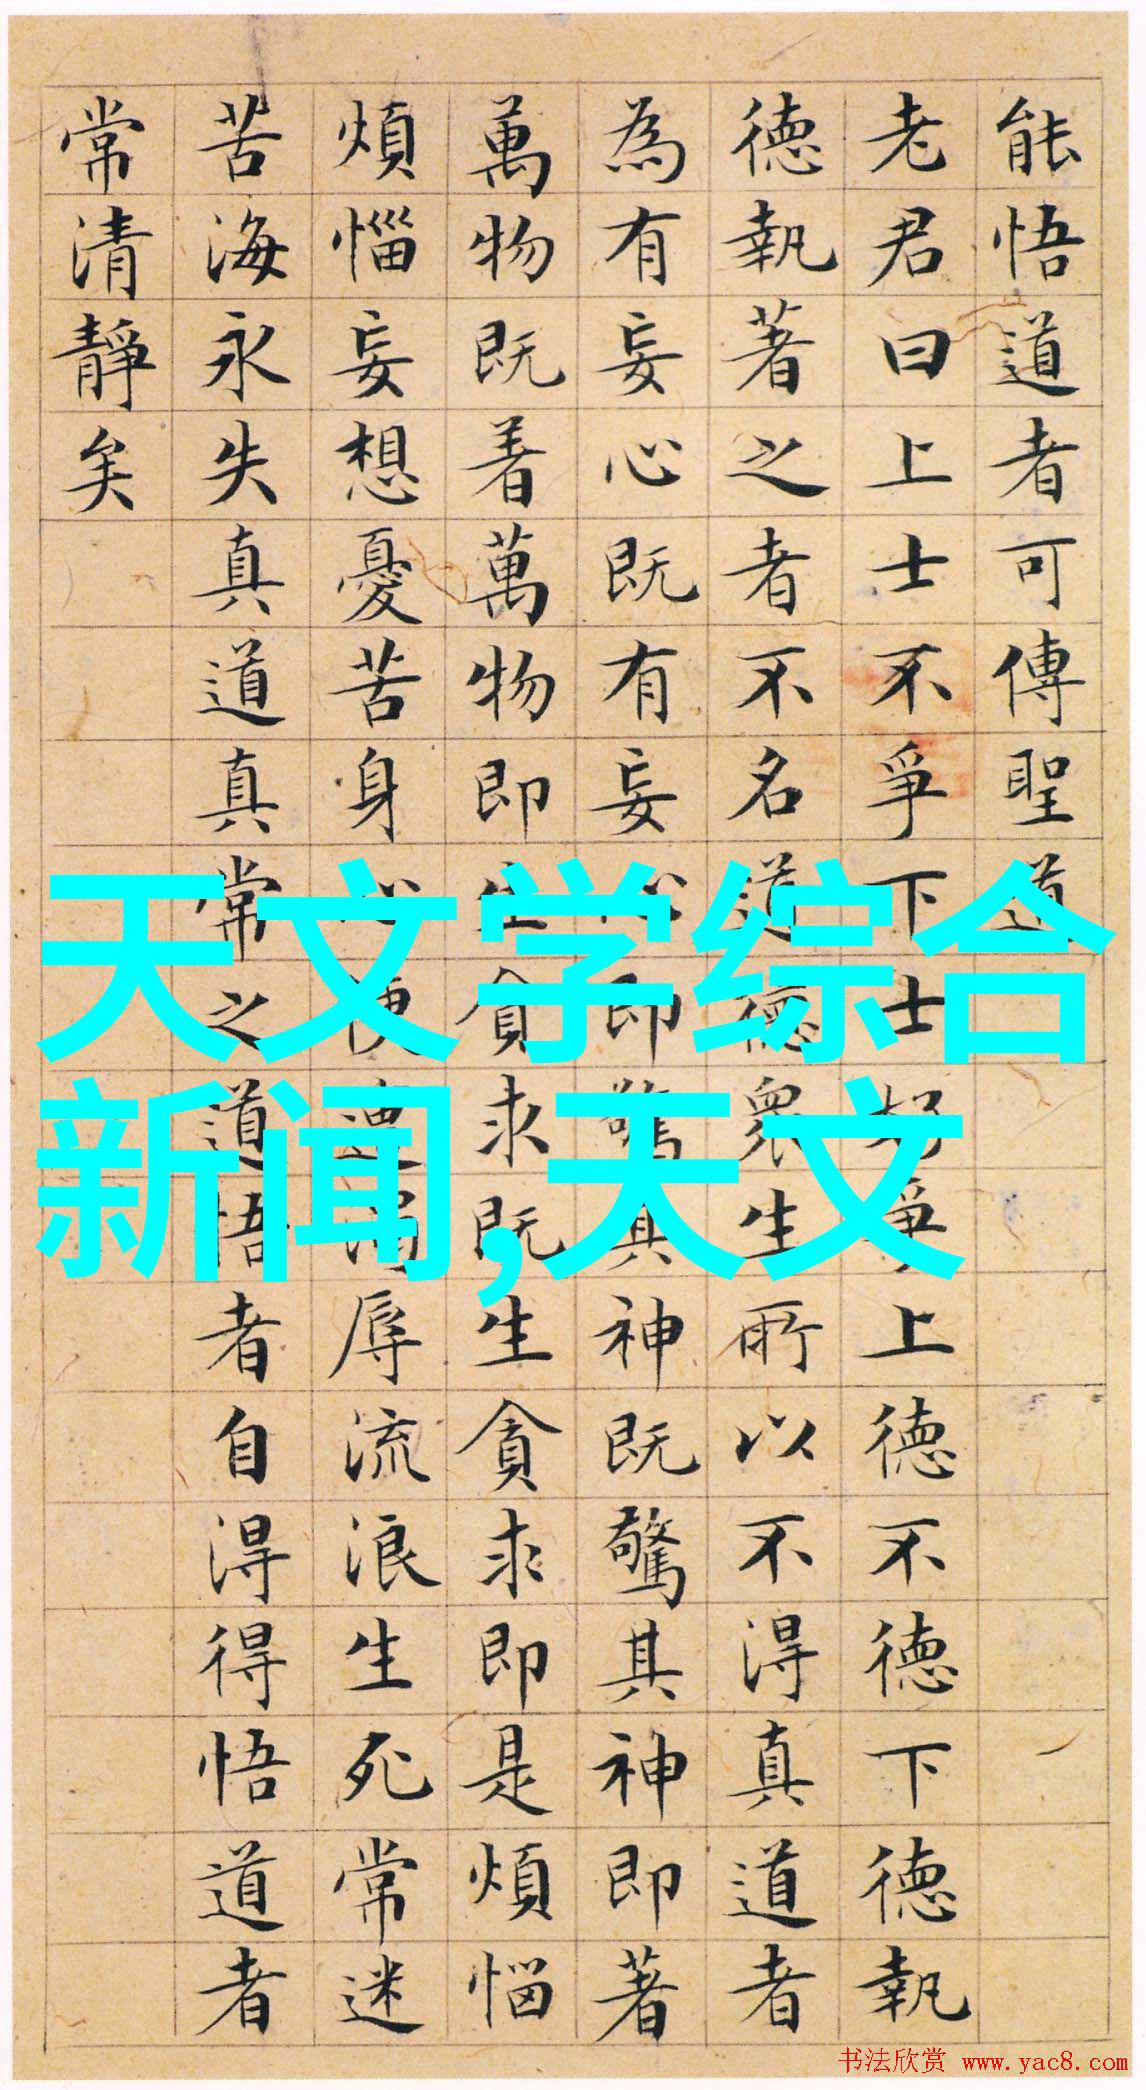 能悟道者可傳聖道
老君曰上士不爭下士好爭上德不德下德執
德執著之者不名道德衆生所以不得真道者
為有妄心既有妄心即驚其神既驚其神即著
萬物既着萬物即生貪求既生貪求即是煩惱
煩惱妄想憂苦身心便遭濁辱流浪生死常迷
苦海永失真道真常之道悟者自得得悟道者
常清靜矣
天文学综合
新闻,天文
书法欣赏 www.yac8.com